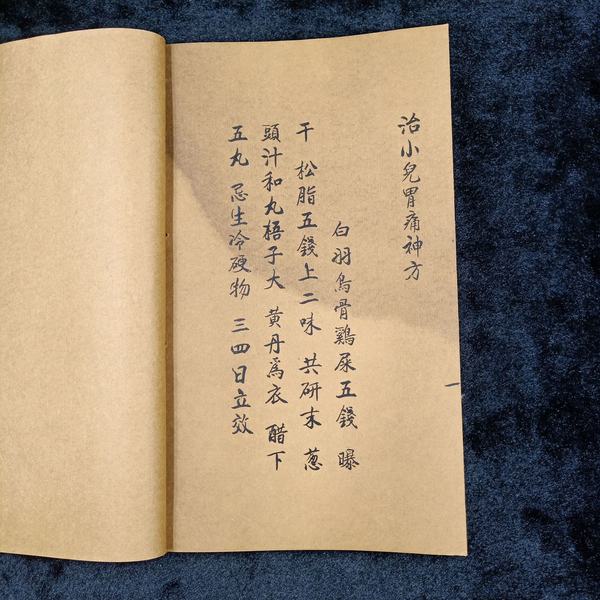 治小兒胃痛神方
白羽烏骨鷄屎五錢 曝
干 松脂五錢上二味 共研末 葱
頭汁和丸梧子大 黄丹爲衣 醋下
五丸 忌生冷硬物 三四日立效